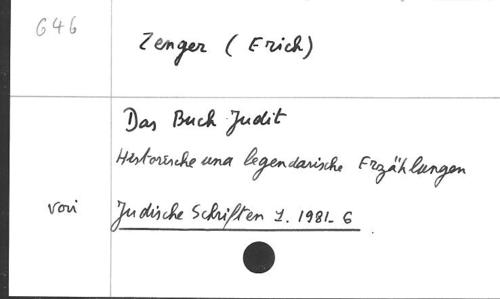 646
Zenger (Erich)
Das Buch Judit
Historische una legendarische Erzählungen
vori Judische Schriften 1. 1981-6